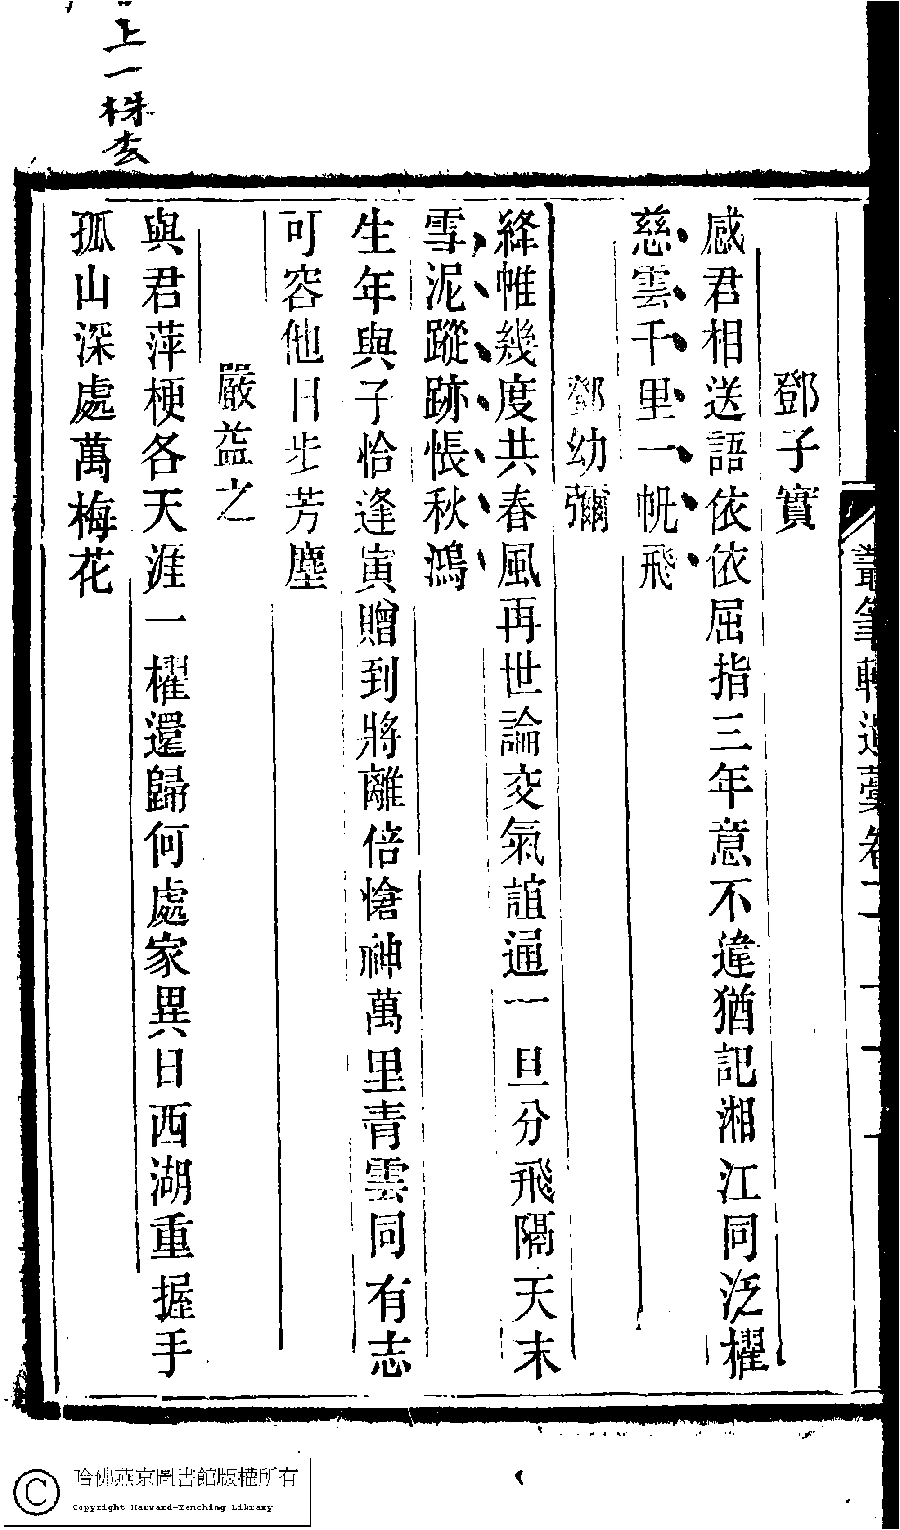 鄧子實
感君相送語依依屈指三年意不違猶記湘江同泛櫂
慈雲千里一帆飛
鄧幼彌
絳帷幾度共春風再世論交氣誼通一旦分飛隔天末
雪泥蹤跡悵秋鴻
生年與子恰逢寅贈到將離倍愴神萬里青雲同有志
可容他日步芳塵
嚴益之
與君萍梗各天涯一櫂還歸何處家異日西湖重握手
孤山深處萬梅花
上一株李
哈佛燕京圖書館版權所有
Copyright Harvard-Yenching Library